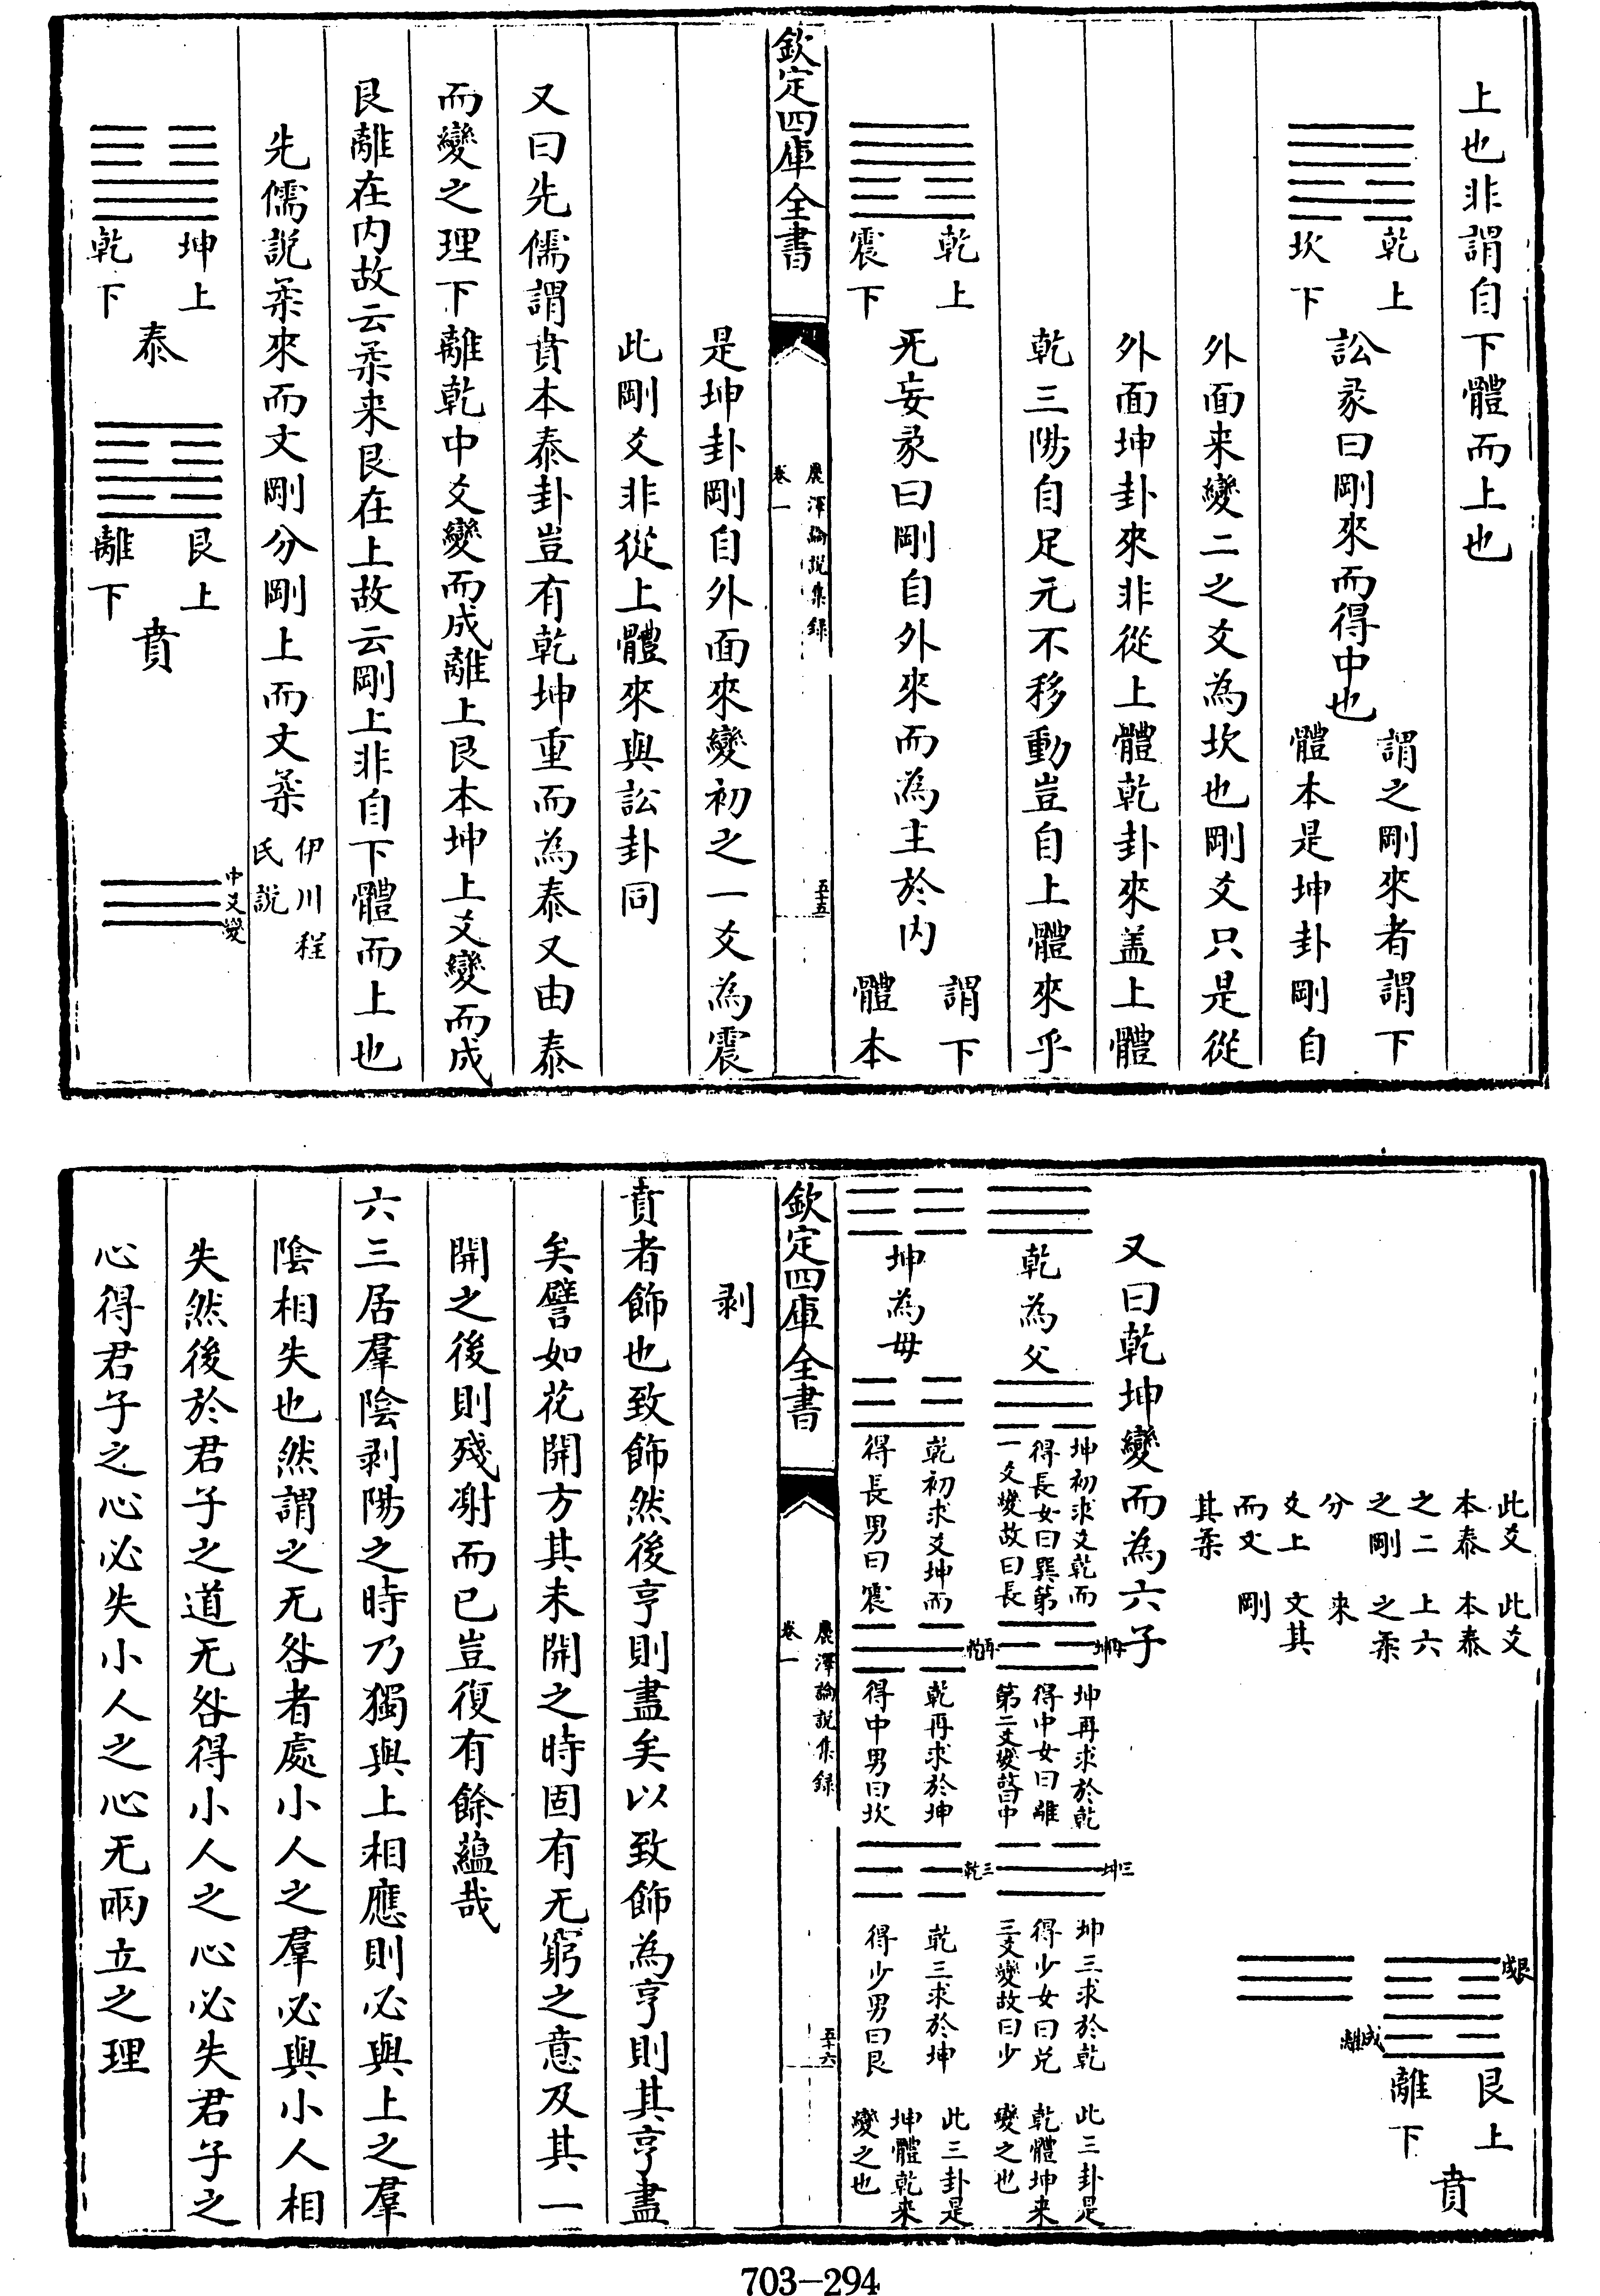 上也非謂自下體而上也
乾上
坎下
訟彖曰剛來而得中也
謂之剛來者謂下
體本是坤卦剛自
外面来變二之爻為坎也剛爻只是從
外面坤卦來非從上體乾卦來盖上體
乾三陽自足元不移動豈自上體來乎
乾上
震下
无妄彖曰剛自外來而為主於内
謂下
體本
欽定四庫全書
麗澤論説集録
卷一
五十五
是坤卦剛自外面來變初之一爻為震
此剛爻非從上體來與訟卦同
又曰先儒謂賁本泰卦豈有乾坤重而為泰又由泰
而變之理下離乾中爻變而成離上艮本坤上爻變而成
艮離在内故云柔来艮在上故云剛上非自下體而上也
先儒説柔來而文剛分剛上而文柔
伊川程
氏説
坤上
乾下
泰
艮上
離下
賁
中爻變
成艮
成離
艮上
離下
賁
此爻
本泰
之二
之剛
分
爻上
而文
其柔
此爻
本泰
上六
之柔
来
文其
剛
又曰乾坤變而為六子
乾為父
坤初求爻乾而
得長女曰巽第
一爻變故曰長
再坤
坤再求於乾
得中女曰離
第二爻變故曰中
三坤
坤三求於乾
得少女曰兑
三爻變故曰少
此三卦是
乾體坤来
變之也
坤為母
乾初求爻坤而
得長男曰震
再乾
乾再求於坤
得中男曰坎
三乾
乾三求於坤
得少男曰艮
此三卦是
坤體乾来
變之也
欽定四庫全書
麗澤論説集録
卷一
五十六
剥
賁者飾也致飾然後亨則盡矣以致飾為亨則其亨盡
矣譬如花開方其未開之時固有无窮之意及其一
開之後則殘謝而已豈復有餘蘊哉
六三居羣陰剥陽之時乃獨與上相應則必與上之羣
陰相失也然謂之无咎者處小人之羣必與小人相
失然後於君子之道无咎得小人之心必失君子之
心得君子之心必失小人之心无兩立之理
703-294